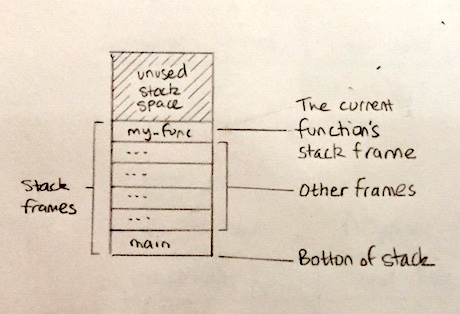 unused
stack
space
my-func
---
---
---
---
main
Stack
frames
The current
function's
stack frame
Other frames
Botton of stack